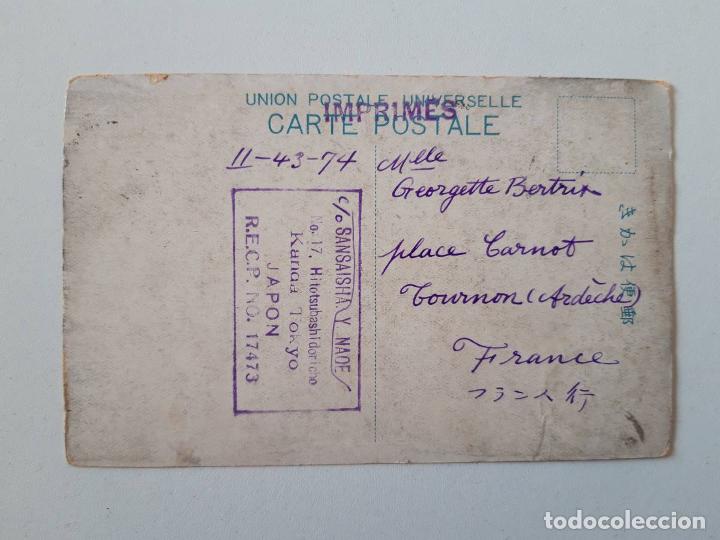 UNION POSTALE UNIVERSELLE
IMPRIMÉS
CARTE POSTALE
II-43-74
Mlle
Georgette Bertrix
place Carnot
Tournon (Ardèche)
France
フランス行
きかは便郵
c/o SANSAISHA Y NAOE
No. 17, Hitotsubashidoricho
Kanda Tokyo
JAPON
R.E.C.P. NO. 17473
todocoleccion.net